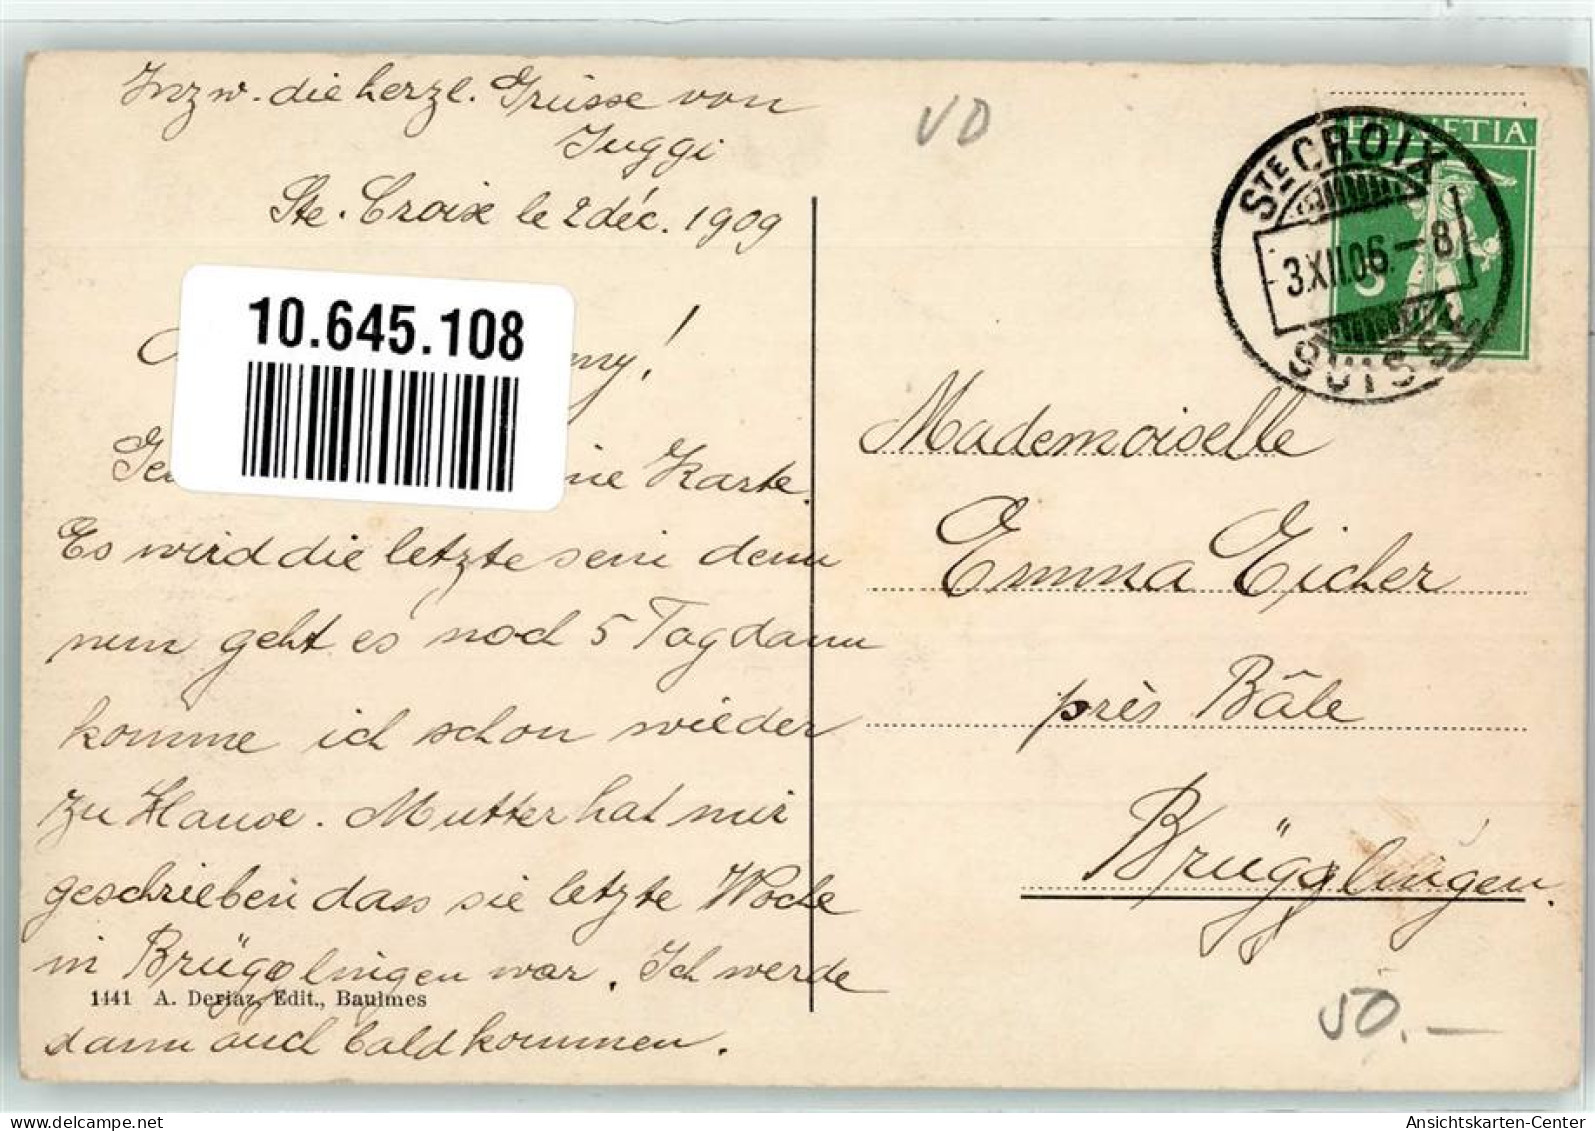 Inzw. die herzl. Grüsse von
Juggi
Ste. Croix le 2 déc. 1909
VD
HELVETIA
STE CROIX
3.XII.06.-8
SUISSE
10.645.108
my!
ine Karte.
Es wird die letzte sein denn
nun geht es noch 5 Tag dann
komme ich schon wieder
zu Hause. Mutter hat mir
geschrieben dass sie letzte Woche
in Brügglingen war. Ich werde
1441 A. Deriaz, Edit., Baulmes
dann auch bald kommen.
Mademoiselle
Emma Eicher
près Bâle
Brügglingen.
50.—
delcampe.net
Ansichtskarten-Center